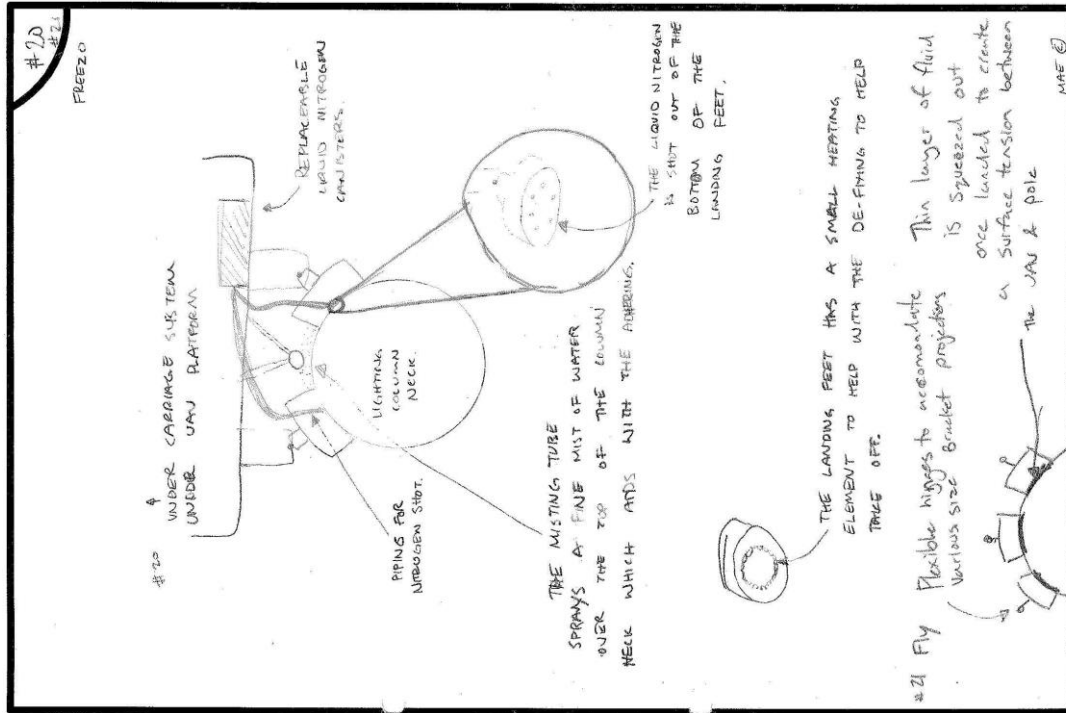 #20
#21
FREEZO
#20
&
UNDER CARRIAGE SYSTEM
UNDER UAV PLATFORM
REPLACEABLE
LIQUID NITROGEN
CANISTERS.
LIGHTING
COLUMN
NECK.
PIPING FOR
NITROGEN SHOT.
THE LIQUID NITROGEN
IS SHOT OUT OF THE
BOTTOM OF THE
LANDING FEET.
THE MISTING TUBE
SPRAYS A FINE MIST OF WATER
OVER THE TOP OF THE COLUMN
NECK WHICH AIDS WITH THE ADHERING.
THE LANDING FEET HAS A SMALL HEATING
ELEMENT TO HELP WITH THE DE-FIXING TO HELP
TAKE OFF.
#21 Fly
Flexible hinges to accomondate
various size Bracket projections
Thin layer of fluid
is squeezed out
once landed to create
a surface tension between
the UAV & pole
MAE